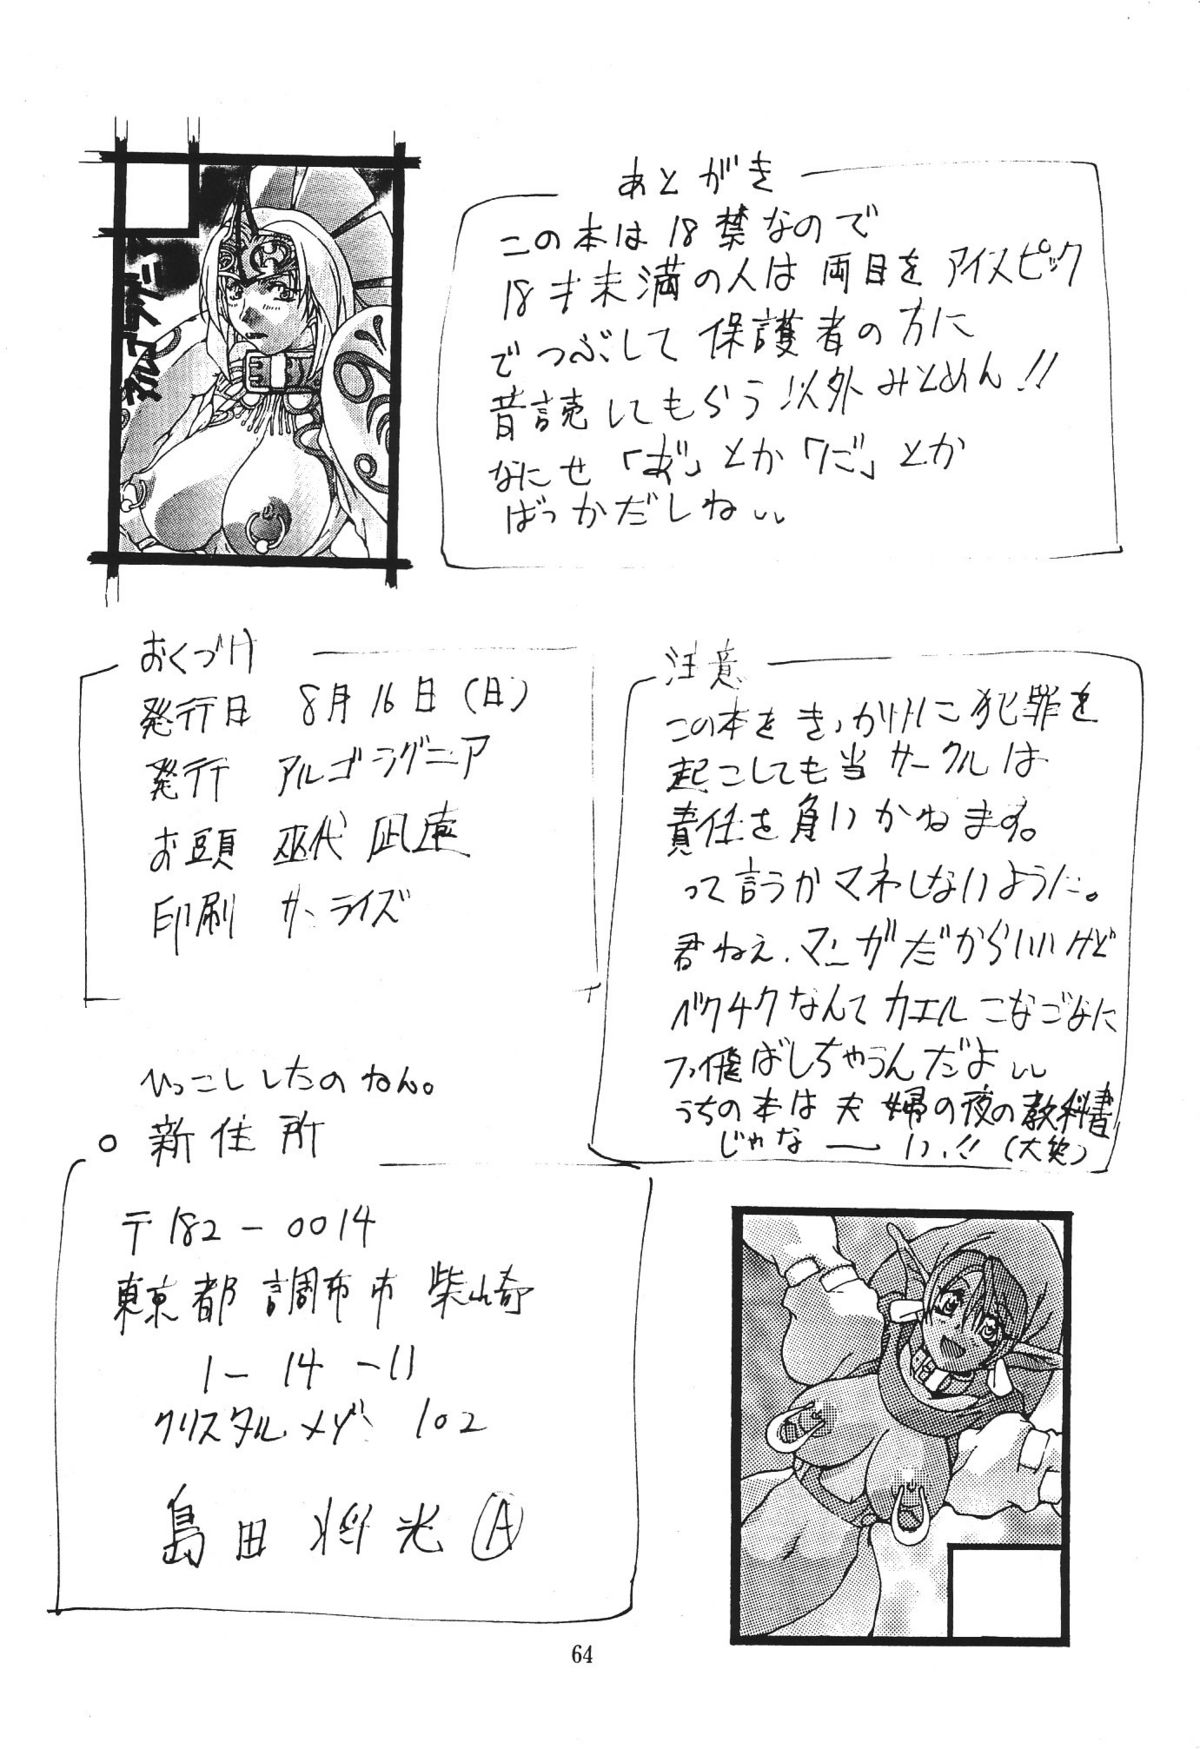 あとがき
この本は18禁なので
18才未満の人は両目をアイスピック
でつぶして保護者の方に
音読してもらう以外みとめん!!
なにせ「あ゛」とか「ご」とか
ばっかだしね、、
おくづけ
発行日 8月16日(日)
発行 アルゴラグニア
お頭 巫代凪遠
印刷 サンライズ
注意
この本をきっかけに犯罪を
起こしても当サークルは
責任を負いかねます。
って言うかマネしないように。
君ねえ、マンガだからいいけど
バクチクなんてカエルこなごなに
フッ飛ばしちゃうんだよ、、
うちの本は夫婦の夜の教科書
じゃなーい!!(大笑)
ひっこししたのねん。
○新住所
〒182-0014
東京都調布市柴崎
1-14-11
クリスタルメゾン102
島田将光
64